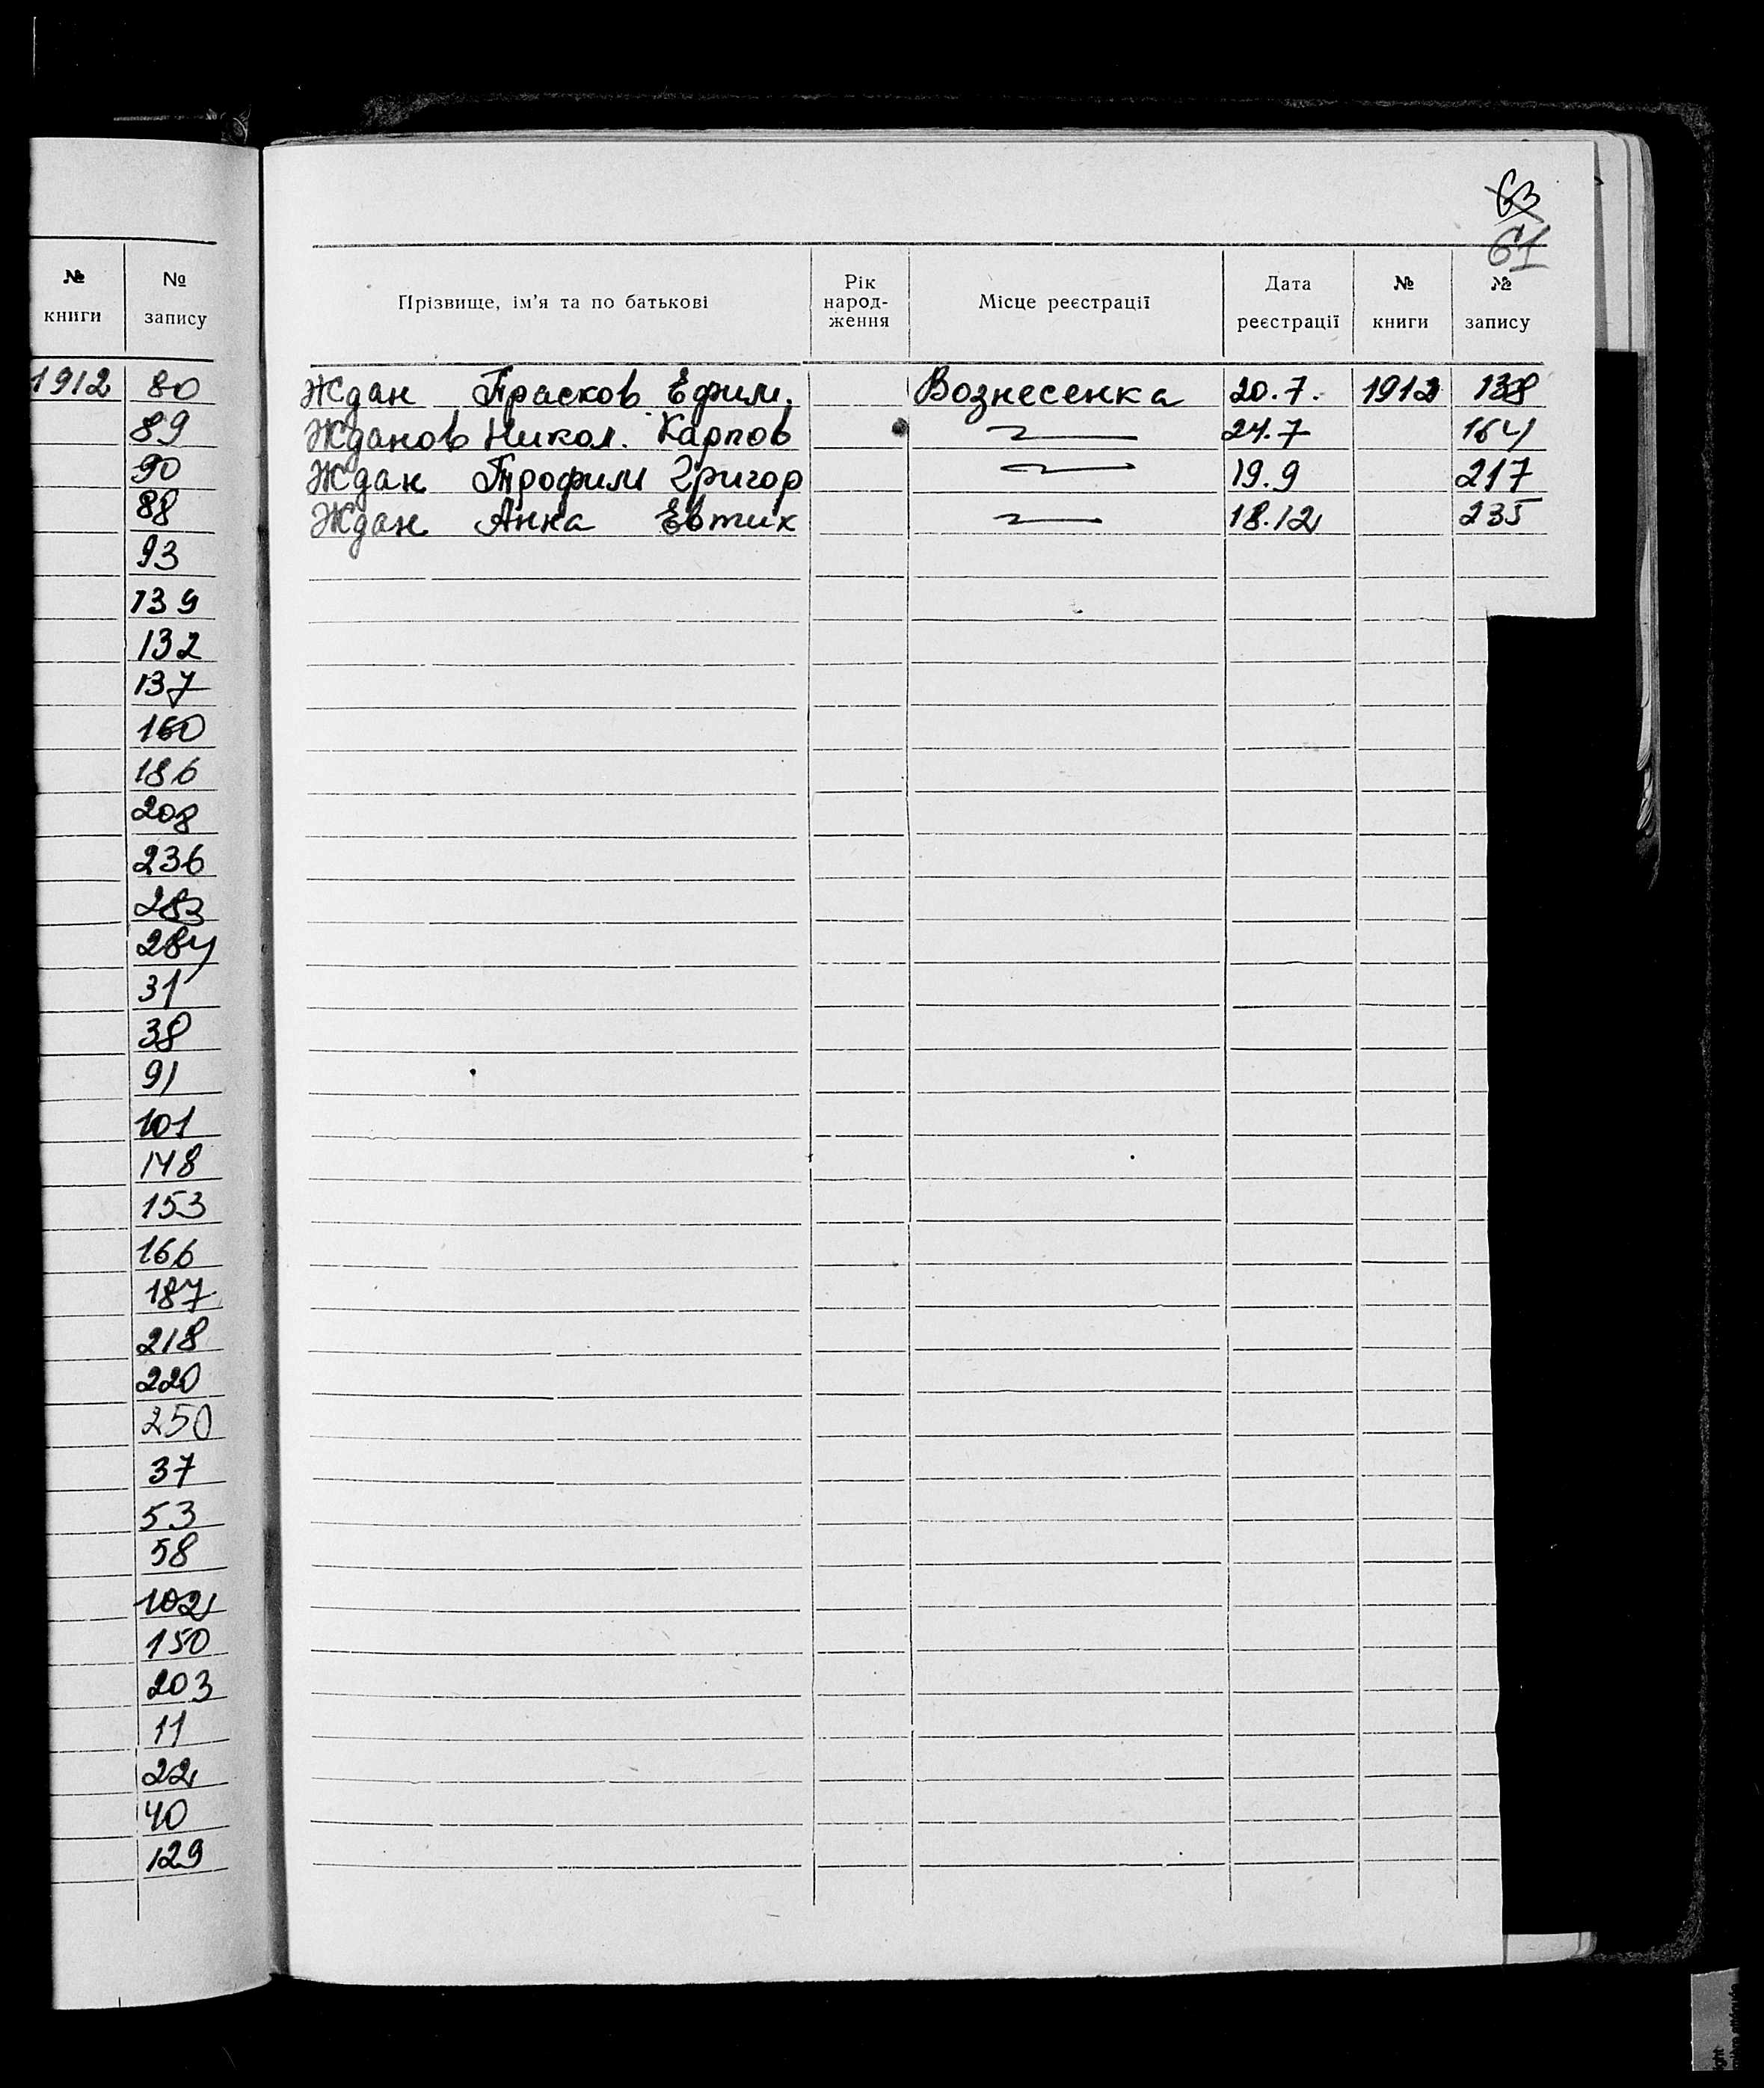 № книги № запису
1912 80
89
90
88
93
139
132
137
160
186
208
236
283
284
31
38
91
101
148
153
166
187
218
220
250
37
53
58
102
150
203
11
22
40
129
63
61
Прізвище, ім'я та по батькові Рік народ-ження Місце реєстрації Дата реєстрації № книги № запису
Ждан Прасков Ефим. Вознесенка 20.7. 1912 138
Жданов Никол. Карпов 24.7 164
Ждан Трофим Григор 19.9 217
Ждан Анна Евтих 18.12 235